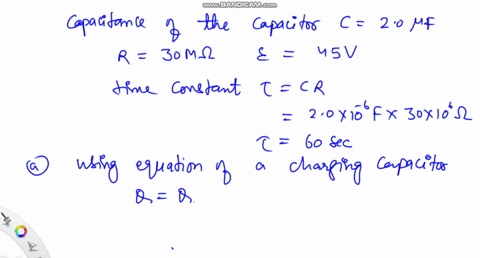 www.BANDICAM.com
Capacitance of the Capacitor C = 2.0 μF
R = 30MΩ ε = 45V
time Constant τ = CR
= 2.0×10⁻⁶F × 30×10⁶Ω
τ = 60 sec
(a) Using equation of a charging Capacitor
Q = Q